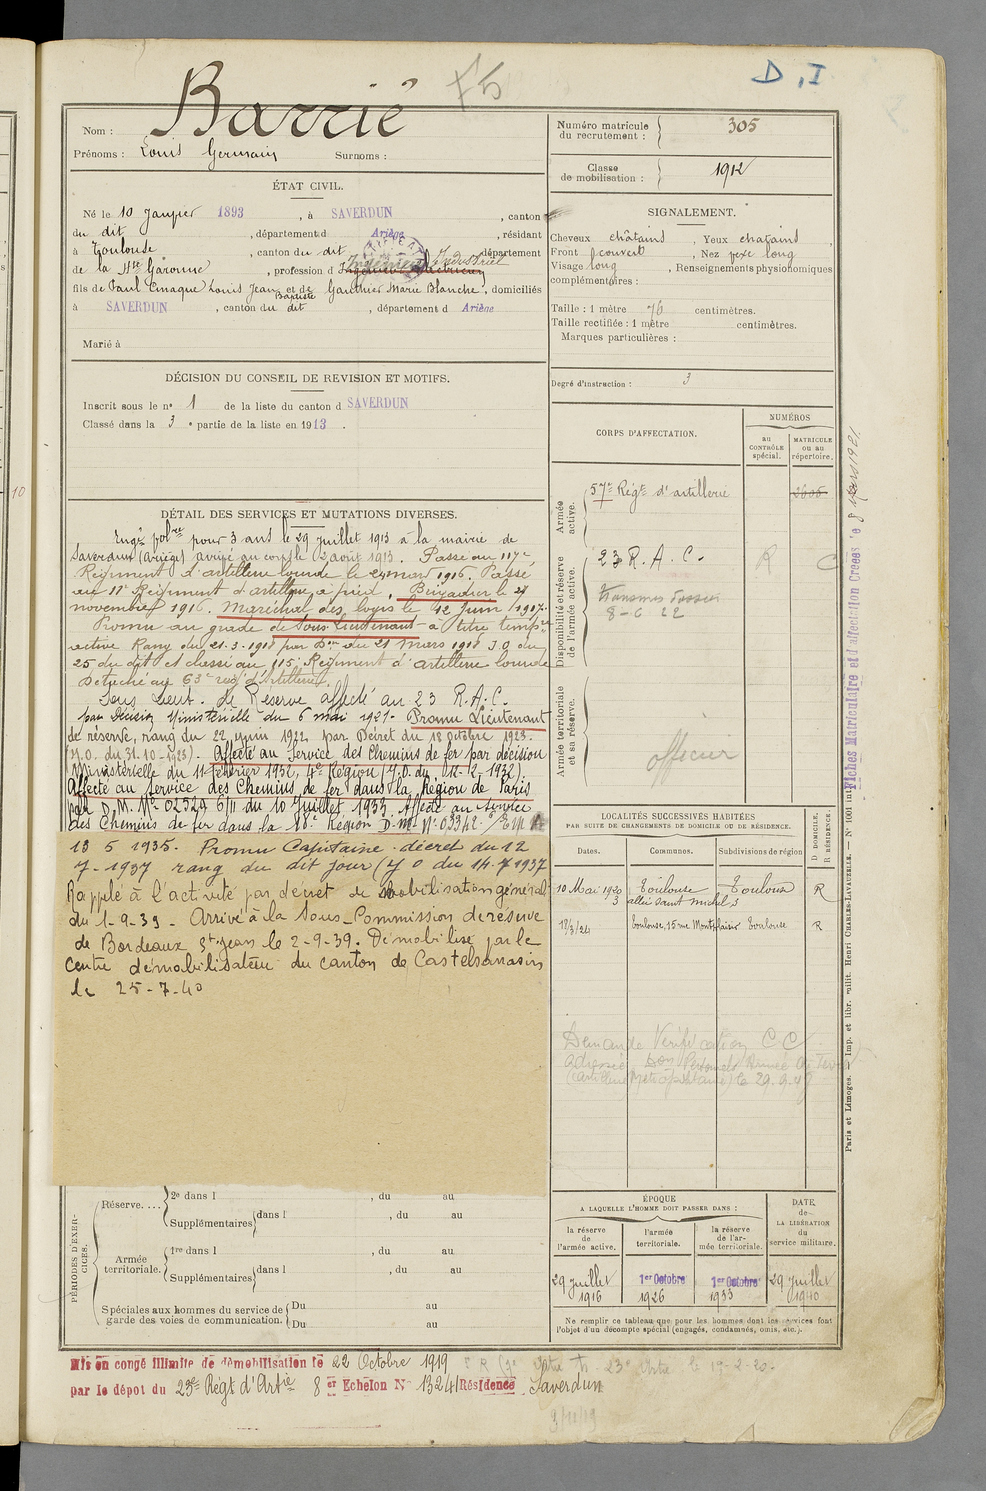 75
D, I
Nom : Barrié
Prénoms : Louis Germain Surnoms :
Numéro matricule du recrutement : 305
Classe de mobilisation : 1912
ÉTAT CIVIL.
Né le 10 Janvier 1893, à SAVERDUN, canton
du dit, département d Ariège, résidant
à Toulouse, canton du dit département
de la Hte Garonne, profession d Ingénieur Industriel
fils de Paul Louis Jean Baptiste et de Gauthier Marie Blanche, domiciliés
à SAVERDUN, canton du dit, département d Ariège
Marié à
SIGNALEMENT.
Cheveux châtains, Yeux chatains
Front couvert, Nez long
Visage long, Renseignements physionomiques
complémentaires :
Taille : 1 mètre 76 centimètres.
Taille rectifiée : 1 mètre centimètres.
Marques particulières :
Degré d'instruction : 3
DÉCISION DU CONSEIL DE REVISION ET MOTIFS.
Inscrit sous le n° 1 de la liste du canton d SAVERDUN
Classé dans la 3e partie de la liste en 1913.
DÉTAIL DES SERVICES ET MUTATIONS DIVERSES.
Engé volre pour 3 ans le 29 juillet 1913 à la mairie de
Saverdun (Ariège) arrivé au corps le 2 août 1913. Passé au 117e
Régiment d'artillerie lourde le mars 1916. Passé
au 11e Régiment d'artillerie à pied, Brigadier le 27
novembre 1916. Maréchal des logis le 12 Juin 1917.
Promu au grade de Sous-Lieutenant à titre tempre
active Rang du 21-3-1918 par Don du 21 Mars 1918 J.O. du
25 du dit et classé au 115e Régiment d'artillerie lourde
Détaché au 63e reg. d'Artillerie.
Sous Lieut. de Réserve affecté au 23 R.A.C.
par Décision Ministérielle du 6 mai 1921. Promu Lieutenant
de réserve, rang du 22 juin 1922 par Décret du 18 octobre 1923.
(J.O. du 31-10-1923). Affecté au Service des Chemins de fer par décision
Ministérielle du 11 Février 1932, 4e Région (J.O. du 12-2-1932).
Affecté au Service des Chemins de fer dans la Région de Paris
par D.M. N° 02529 6/11 du 10 Juillet 1933. Affecté au service
des Chemins de fer dans la 18e Région D.M. N° 03342
13 5 1935. Promu Capitaine décret du 12
7-1937 rang du dit jour (J O du 14-7 1937
Rappelé à l'activité par décret de mobilisation générale
du 1-9-39. Arrivé à la Sous-Commission de réserve
de Bordeaux St Jean le 2-9-39. Démobilisé par le
Centre démobilisateur du canton de Castelsarrasin
le 25-7-40
CORPS D'AFFECTATION.
NUMÉROS
AU CONTRÔLE spécial.
MATRICULE ou au répertoire.
Armée active.
57e Régt d'artillerie
Disponibilité et réserve de l'armée active.
23 R.A.C. R C
transmis dossier
8-6 22
Armée territoriale et sa réserve.
officier
Fiches Matriculaire et d'affectation Créées le 8 Mars 1921.
LOCALITÉS SUCCESSIVES HABITÉES
PAR SUITE DE CHANGEMENTS DE DOMICILE OU DE RÉSIDENCE.
Dates. Communes. Subdivisions de région D. DOMICILE. R. RÉSIDENCE.
10 Mai 1920 Toulouse Toulouse R
allée saint michel 3
18/3/24 Toulouse, 15 rue Montplaisir Toulouse R
Demande Vérification C C
(Artillerie Métropolitaine) le 29.9.4
Paris et Limoges. — Imp. et libr. milit. Henri CHARLES-LAVAUZELLE. — N° 1001 int.
ÉPOQUE
A LAQUELLE L'HOMME DOIT PASSER DANS :
la réserve de l'armée active.
l'armée territoriale.
la réserve de l'armée territoriale.
DATE de LA LIBÉRATION du service militaire.
29 Juillet 1916
1er Octobre 1926
1er Octobre 1933
29 Juillet 1940
Ne remplir ce tableau que pour les hommes dont les services font
l'objet d'un décompte spécial (engagés, condamnés, omis, etc.).
PÉRIODES D'EXERCICES.
Réserve....
2e dans l , du au
Supplémentaires dans l , du au
Armée territoriale.
1re dans l , du au
Supplémentaires dans l , du au
Spéciales aux hommes du service de garde des voies de communication.
Du au
Du au
Mis en congé illimité de démobilisation le 22 Octobre 1919
par le dépôt du 23e Régt d'Artie 8er Echelon N° 1324 Résidence Saverdun
10